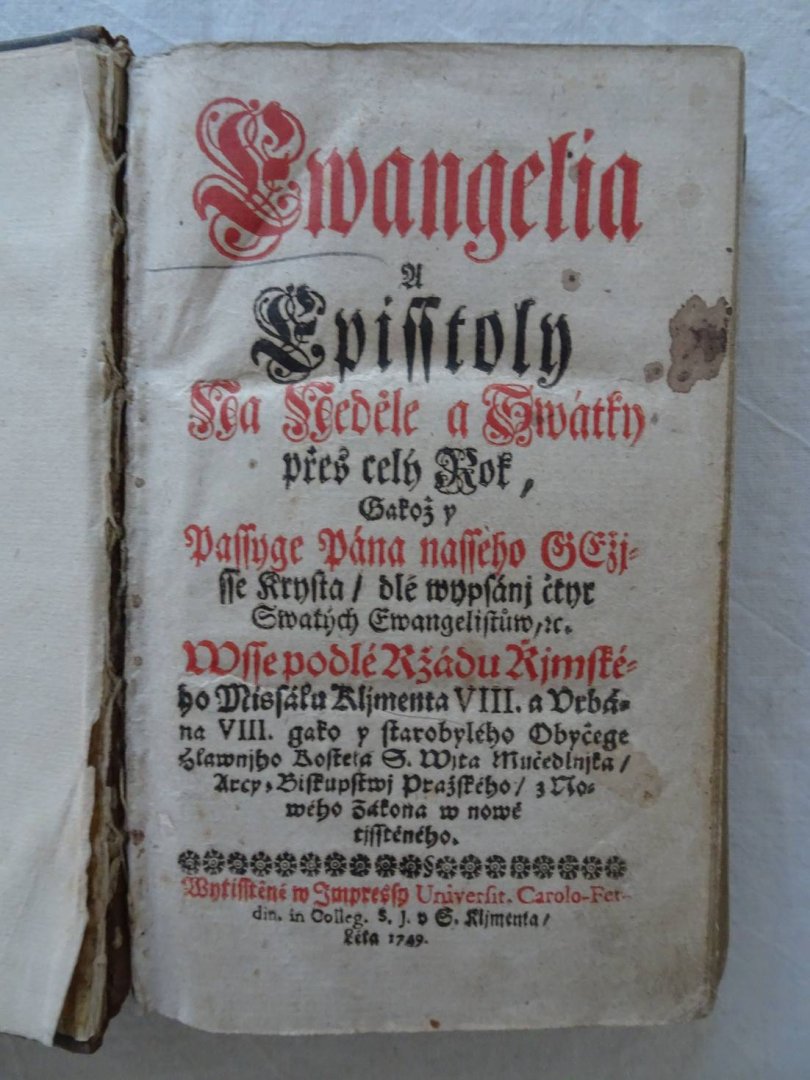 Ewangelia
A
Episstoly
Na Neděle a Swátky
přes celý Rok,
Gakož y
Passyge Pána nasseho GEžj-
sse Krysta / dlé wypsánj čtyr
Swatých Ewangelistůw, ꝛc.
Wsse podlé Ržádu Ržjmské-
ho Missálu Kljmenta VIII. a Vrbá-
na VIII. gako y starobylého Obyčege
Hlawnjho Kostela S. Wjta Mučedlnjka /
Arcy-Biskupstwj Pražského / z No-
wého Zákona w nowě
tisstěného.
Wytisstěné w Impressy Universit. Carolo-Fer-
din. in Colleg. S. J. v S. Kljmenta /
Léta 1749.